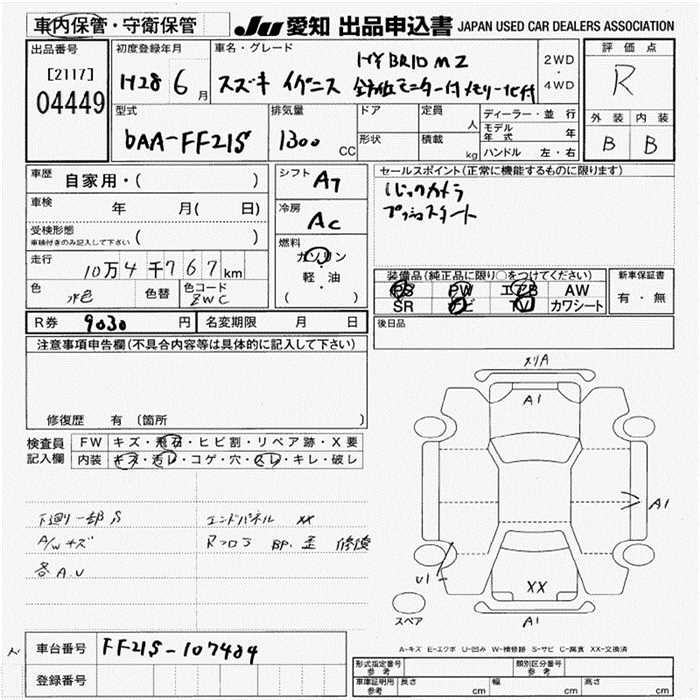 車内保管・守衛保管
JU 愛知 出品申込書 JAPAN USED CAR DEALERS ASSOCIATION
出品番号
[2117]
04449
初度登録年月
H28 6 月
車名・グレード
HYBRID MZ
スズキ イグニス
2WD
・
4WD
評価点
R
外装 内装
B B
型式
DAA-FF21S
排気量
1300 CC
ドア
形状
定員
人
積載
kg
ディーラー・並行
モデル年式 年
ハンドル 左・右
車歴
自家用・( )
車検
年 月( 日)
受検形態
車検付きのみ記入して下さい ( )
走行
10万4千767km
色
水色
色替
色コード
ZWC
シフト
AT
冷房
AC
燃料
ガソリン
軽・油
( )
セールスポイント(正常に機能するものに限ります)
バックカメラ
プッシュスタート
装備品(純正品に限り○をつけてください)
PS PW エアB AW
SR ナビ TV カワシート
新車保証書
有・無
R券 9030 円
名変期限 月 日
後日品
注意事項申告欄(不具合内容等は具体的に記入して下さい)
修復歴 有 〔箇所 〕
検査員
記入欄
FW キズ・飛石・ヒビ割・リペア跡・X要
内装 キズ・汚レ・コゲ・穴・スレ・キレ・破レ
下廻り一部S
A/Wキズ
各A.U
エンドパネル XX
Rフロア BP.歪 修復
メリA
A1
A1
U1
XX
A1
スペア
A-キズ E-エクボ U-凹み W-補修跡 S-サビ C-腐食 XX-交換済
車台番号
FF21S-107484
登録番号
形式指定番号
参考
類別区分番号
参考
車庫証明用
参考
長さ cm
幅 cm
高さ cm